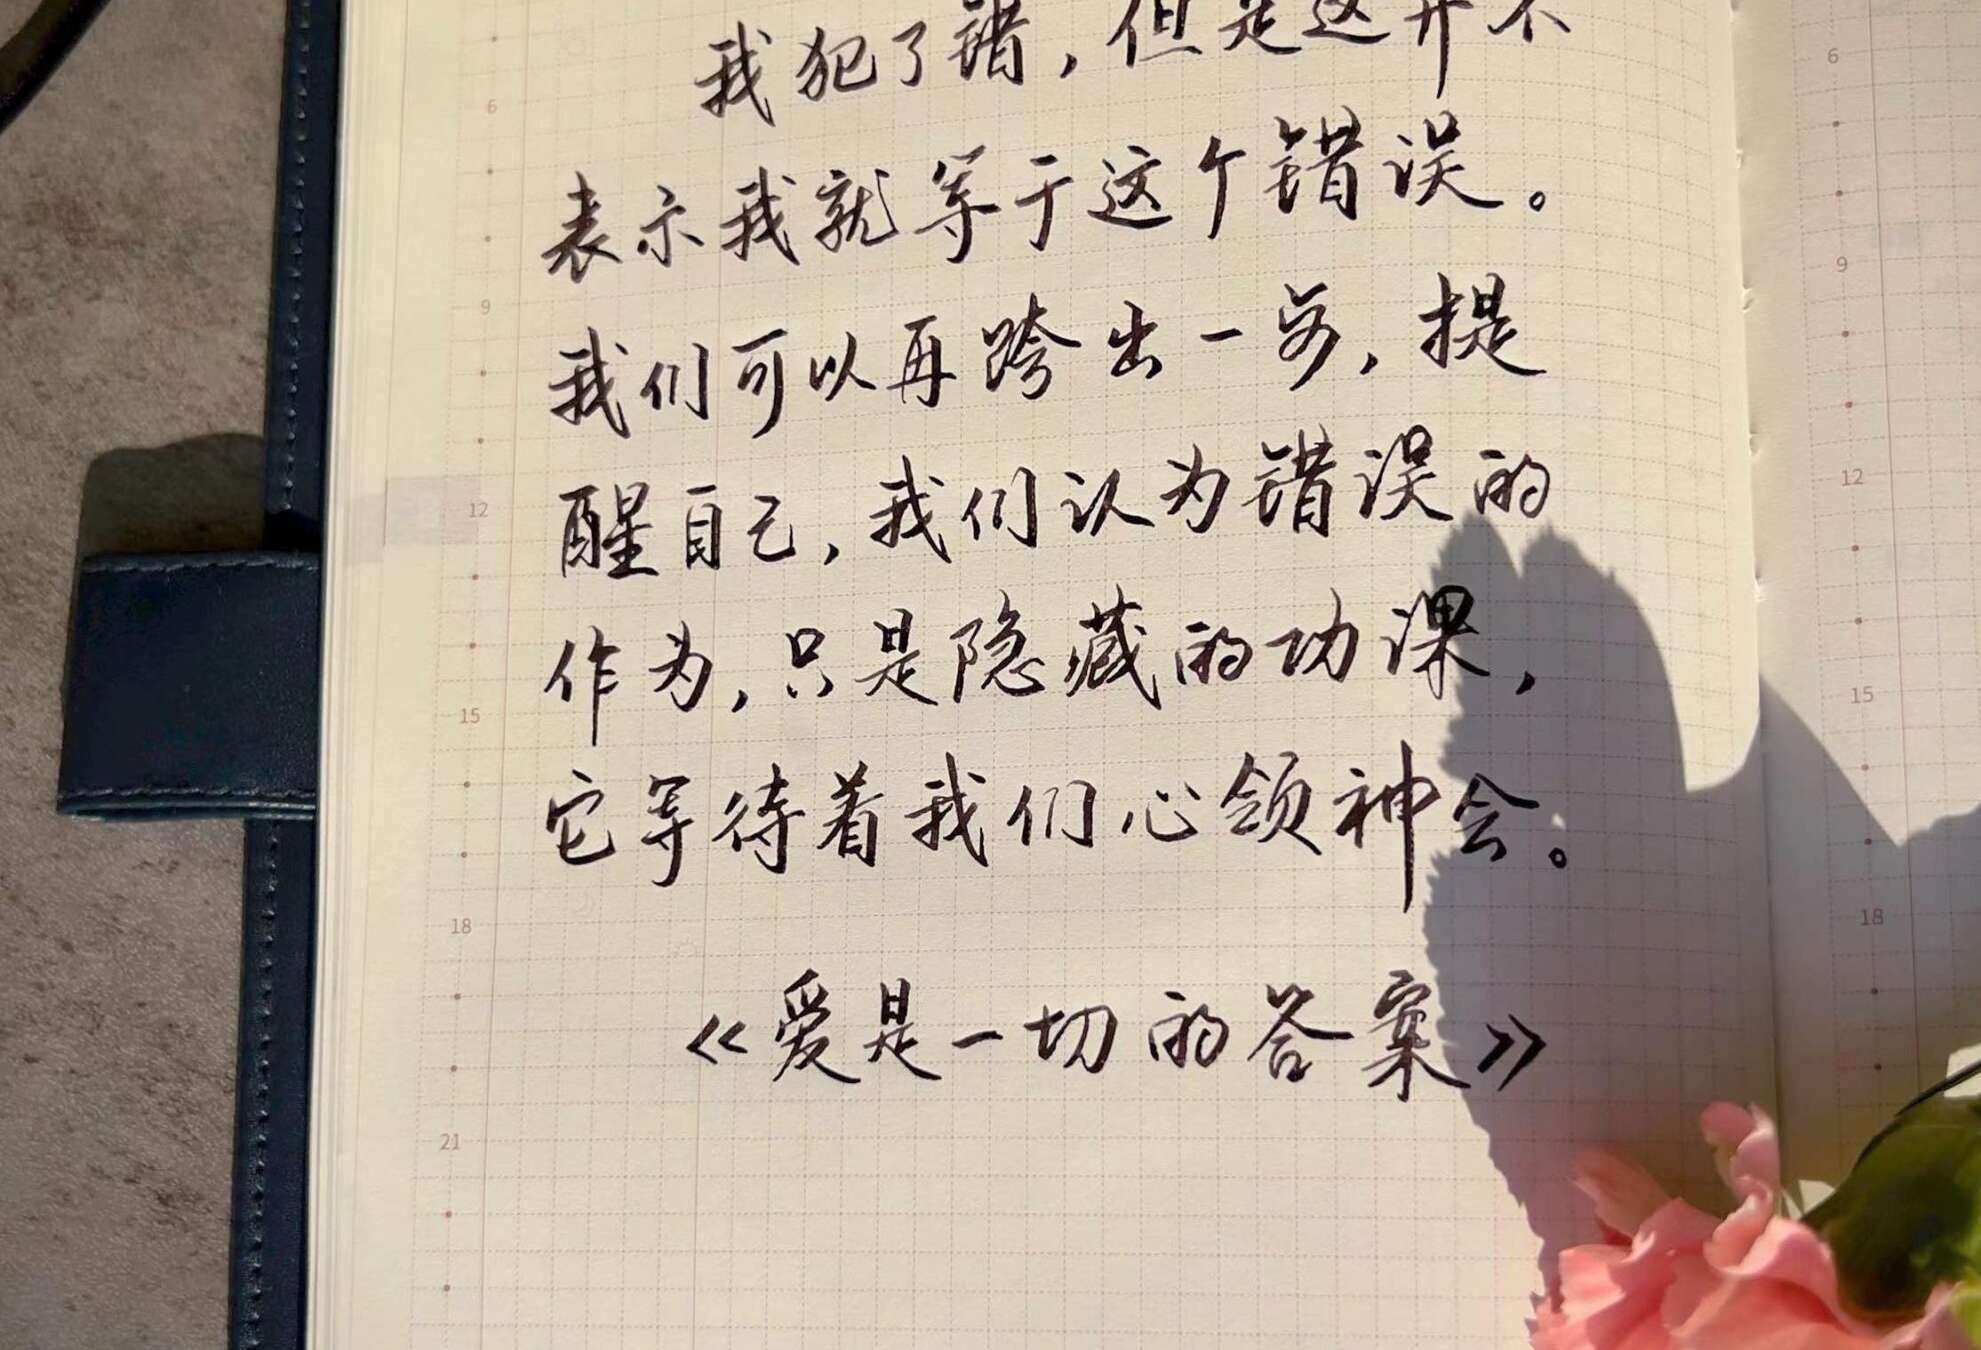 我犯了错，但是这并不
表示我就等于这个错误。
我们可以再跨出一步，提
醒自己，我们认为错误的
作为，只是隐藏的功课，
它等待着我们心领神会。
《爱是一切的答案》
6
9
12
15
18
21
6
9
12
15
18